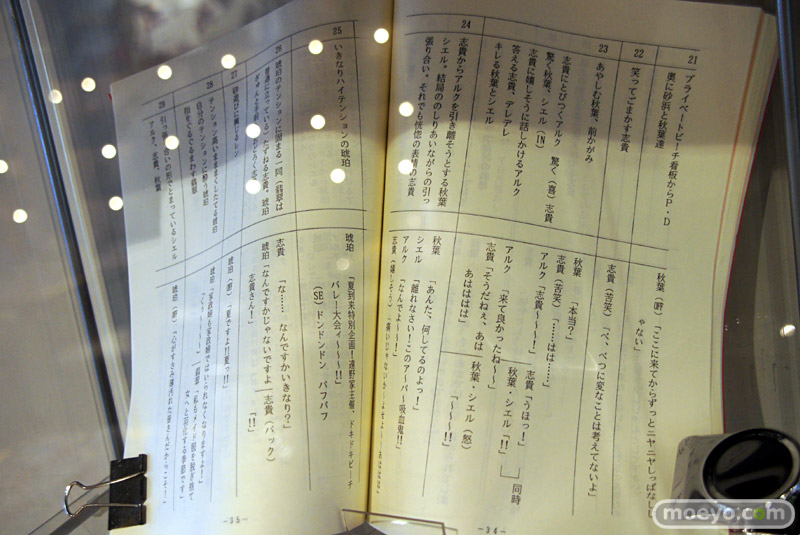 21
プライベートビーチ看板からP・D
奥に砂浜と秋葉達
秋葉(呼)「ここに来てからずっとニヤニヤしっぱなし
ゃない」
22
笑ってごまかす志貴
志貴(苦笑)「べ、べつに変なことは考えてないよ」
23
あやしむ秋葉、前かがみ
秋葉「本当?」
志貴(苦笑)「……はは……」
志貴にとびつくアルク 驚く(喜)志貴
アルク「志貴〜〜〜!」
志貴「うほっ!」
驚く秋葉、シエル(IN)
秋葉・シエル「!!」
同時
志貴に嬉しそうに話しかけるアルク
アルク「来て良かったね〜〜」
答える志貴、デレデレ
志貴「そうだねぇ、あは
あはははは」
キレる秋葉とシエル
秋葉・シエル(怒)
「〜〜〜!!」
24
志貴からアルクを引き離そうとする秋葉
シエル。結局ののしりあいながらの引っ
張り合い。それでも恍惚の表情の志貴
秋葉「あんた、何してるのよっ!」
シエル「離れなさい!このアーパー吸血鬼!!」
アルク「なんでよ〜〜!」
志貴(嬉しそう)
-34-
25
いきなりハイテンションの琥珀
琥珀「夏到来特別企画!遠野家主催、ドキドキビーチ
バレー大会ィ〜〜〜!!」
(SE)ドンドンドン パフパフ
26
琥珀のテンションに固まる一同(翡翠は
普通に立っている)たずねる志貴。琥珀
志貴「な…… なんですかいきなり?」
琥珀「なんですかじゃないですよ
志貴さん!」
志貴(バック)
「!!」
27
砂遊びに興じるレン
琥珀「夏ですよ!!夏っ!!
28
テンション高いまままくしたてる琥珀
自分のテンションに酔う琥珀
29
アルク、志貴、秋葉
-35-
moeyo.com